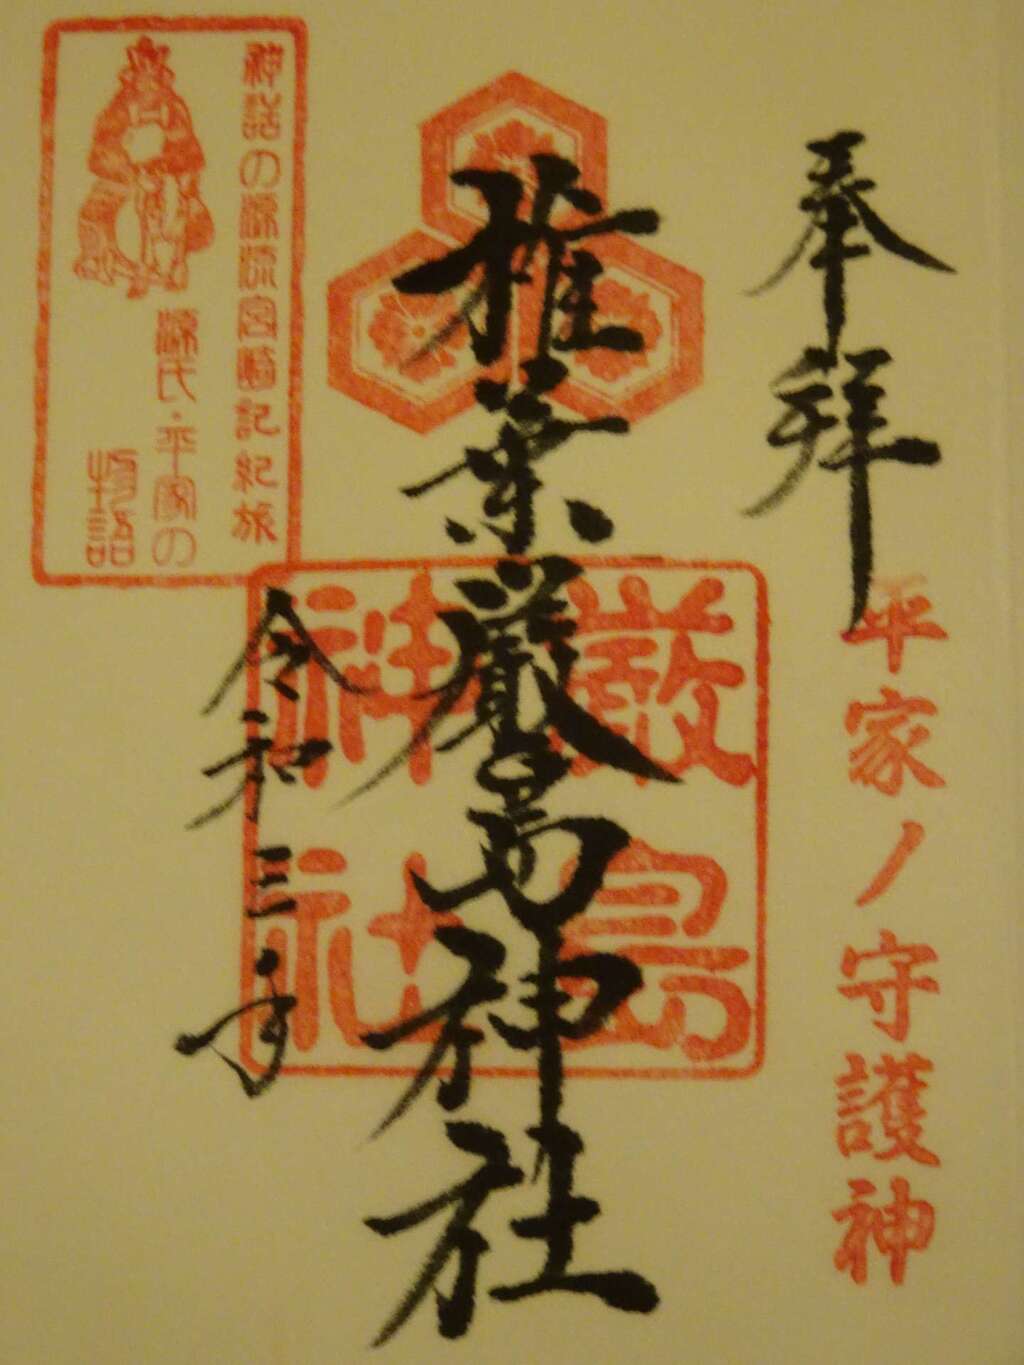 奉拝
平家ノ守護神
椎葉厳島神社
厳島
神社
令和三年
神話の源流宮崎記紀旅
源氏・平家の
物語